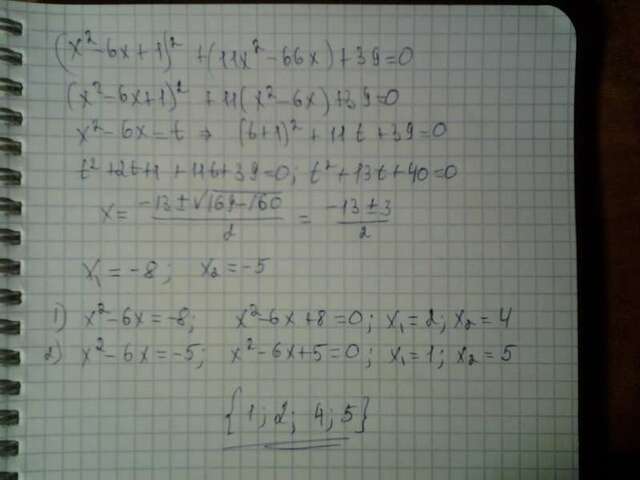 (x²-6x+1)² +(11x²-66x)+39=0
(x²-6x+1)² +11(x²-6x)+39=0
x²-6x=t ⇒ (t+1)²+11t+39=0
t²+2t+1+11t+39=0; t²+13t+40=0
x= (-13±√(169-160))/2 = (-13±3)/2
x₁=-8; x₂=-5
1) x²-6x=-8; x²-6x+8=0; x₁=2; x₂=4
2) x²-6x=-5; x²-6x+5=0; x₁=1; x₂=5
{1; 2; 4; 5}